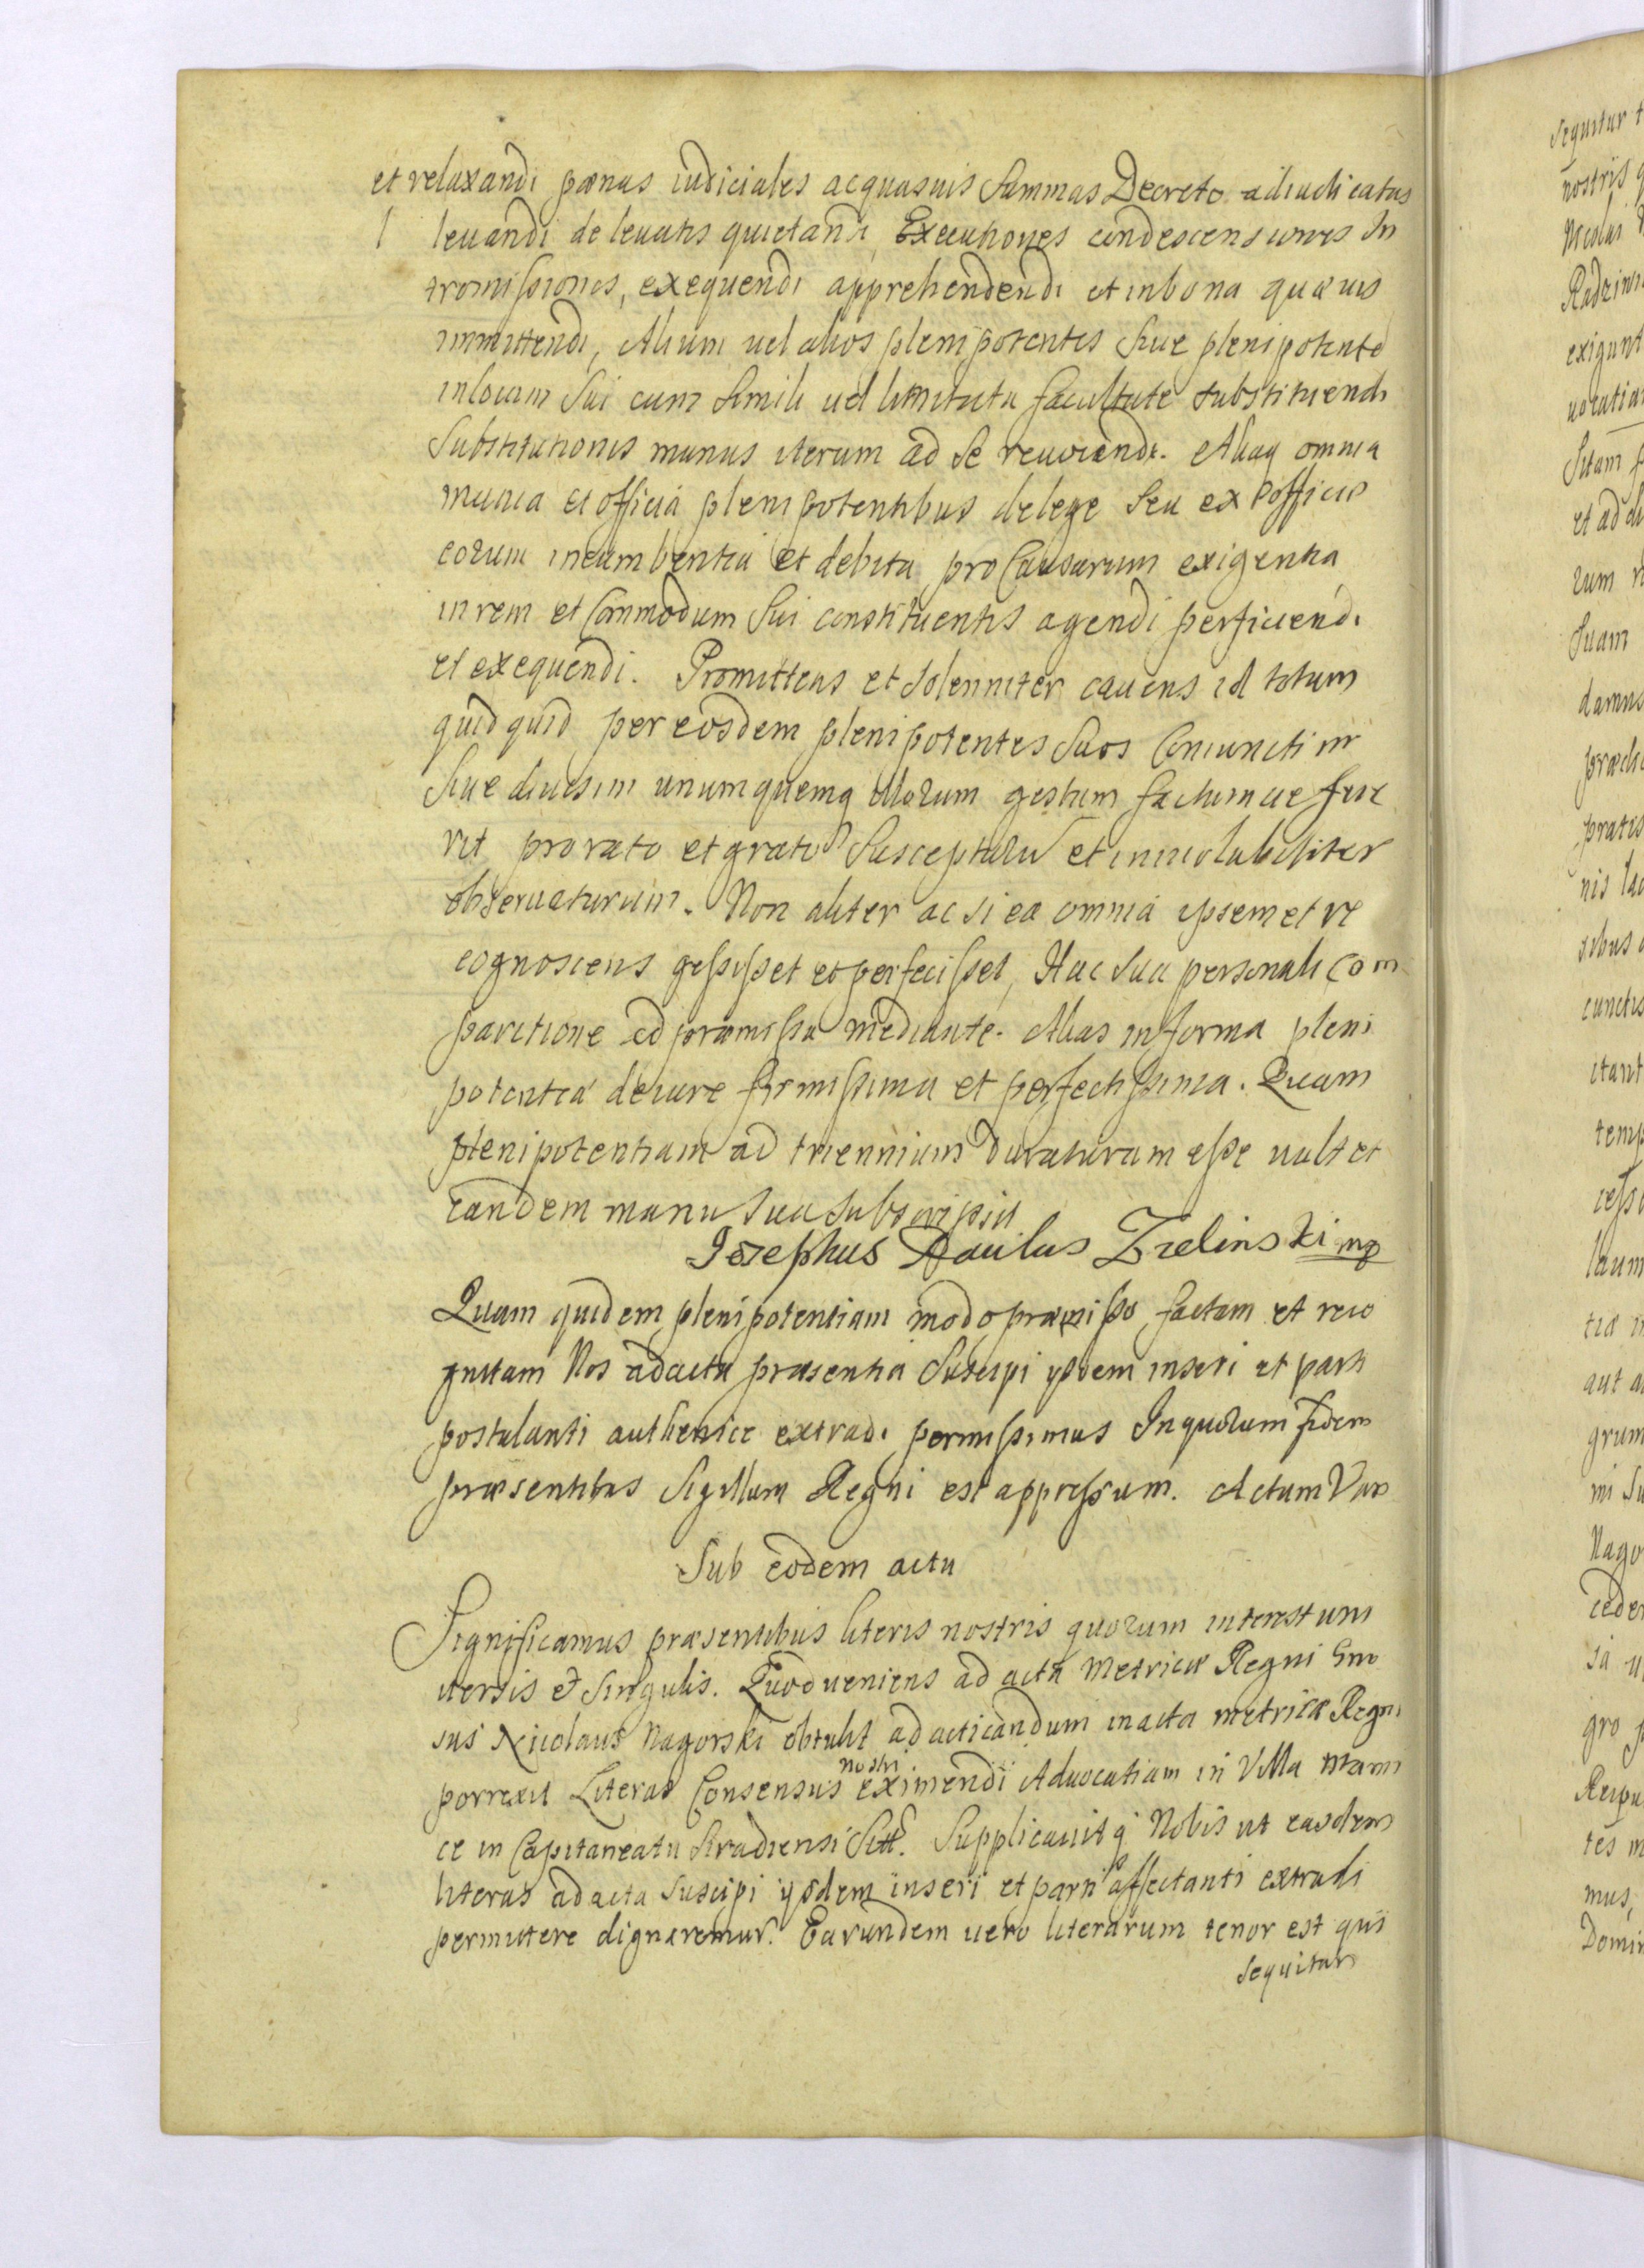 et relaxandi pœnas iudiciales acquasuis Summas Decreto adiudicatas
leuandi de leuatis quietandi, Executiones condescensiones In
tromissiones, exequendi apprehendendi et inbona quæuis
immittendi, Alium uel alios plenipotentes Siue plenipotente
inlocum Sui cum Simili uel limitata facultate substituendi
Substitutionis munus iterum ad Se reuocandi. Aliaq omnia
munia et officia plenipotentibus delege Seu ex officio
eorum incumbentia et debita pro Causarum exigentia
inrem et Commodum Sui constituentis agendi perficiendi
et exequendi. Promittens et Solenniter cauens id totum
quidquid per eosdem plenipotentes Suos Coniunctim
Siue diuisim unumquemq illorum gestum factumue fue
rit prorato et grato Suscepturu et inuiolabiliter
obseruaturum. Non aliter ac si ea omnia ipsemet re
cognoscens gessisset et perfecisset, Hac Sua personali Com
paritione ad præmissa mediante. Alias informa pleni
potentia deiure firmissima et perfectissima. Quam
plenipotentiam ad triennium duraturam esse uult et
eandem manu Sua Subscripsit
Josephus Paulus Zielinski mp
Quam quidem plenipotentiam modopræmisso factam et reco
gnitam Nos adacta præsentia Suscipi ysdem inseri et parti
postulanti authentice extradi permissimus Inquorum fidem
præsentibus Sigillum Regni est appressum. Actum Var
Sub eodem actu
Significamus præsentibus literis nostris quorum interest uni
uersis et Singulis. Quod ueniens ad acta Metricæ Regni Gno
sus Nicolaus Nagorski obtulit ad acticandum inacta metricæ Regni
porrexit Literas Consensus nostri eximendi Aduocatiam in Villa Mam
ce in Capitaneatu Siradiensi Sitt. Supplicauitq Nobis ut easdem
literas adacta Suscipi ysdem inseri et parti affectanti extradi
permittere dignaremur. Earundem uero literarum tenor est qui
Sequitur